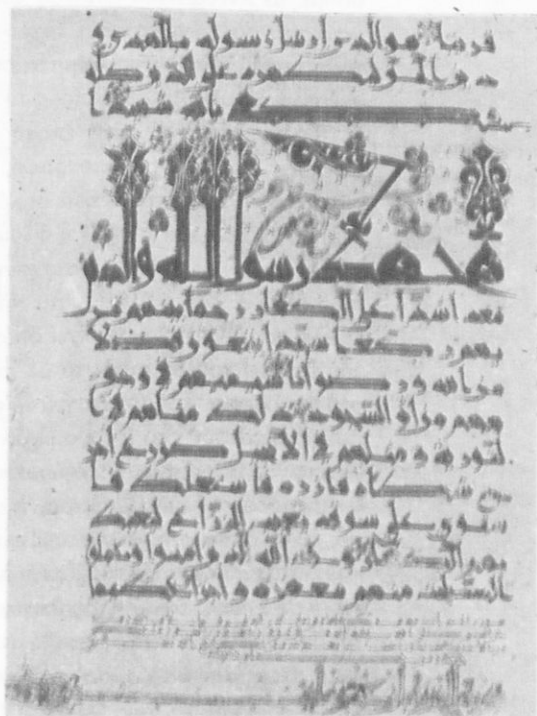 قريبا هو الذى ارسل رسوله بالهدى و
دين الحق ليظهره على الدين كله
وكفى بالله شهيدا
محمد رسول الله والذين
معه اشدا على الكفار رحما بينهم تر
يهم ركعا سجدا يبتغون فضلا
من الله ورضوانا سيماهم فى وجو
ههم من اثر السجود ذلك مثلهم فى ا
لتورية ومثلهم فى الانجيل كزرع اخر
ج شطاه فازره فاستغلظ فا
ستوى على سوقه يعجب الزراع ليغيظ
بهم الكفار وعد الله الذين امنوا وعملوا
الصلحت منهم مغفرة واجرا عظيما